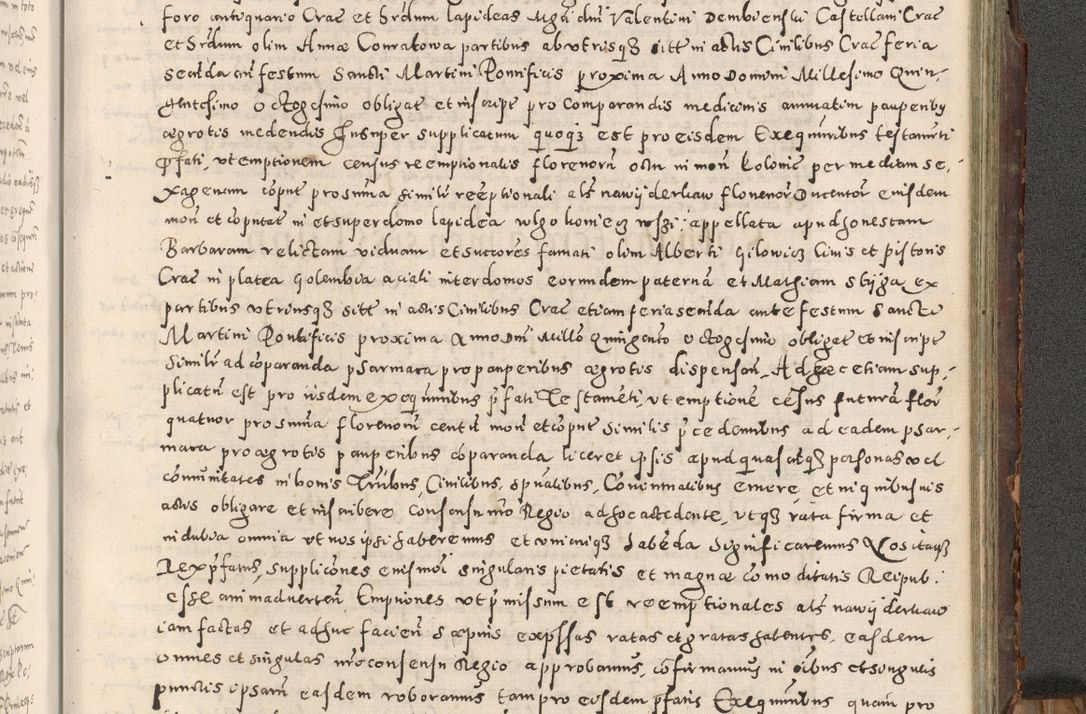 foro antiquario Crac et Srdum lapideas Mgci dni Valentini Dembienski Castellani Crac
et Srdum olim Annæ Conratowa partibus ab utrisqz sitt in actis Civilibus Crac feria
secunda an festum Sancti Martini Pontificis proxima Anno Domini Millesimo Quin-
gentesimo octogesimo obligat et inscript pro comparandis medicinis annuatim pauperibq
ægrotis medendis Insuper supplicatum quoqz est pro eisdem Exequutoribus testamti
pfati, ut emptionem census reemptionalis florenorum octu in mon Polonic per medium se-
xagenam coput pro summa simili reeptionali als nawijderkaw florenor Ducentor eiusdem
mon et coputat in et super domo lapidea wlgo koniecz appellata apud honestam
Barbaram relictam viduam et succores famati olim Alberti Gilowicz Civis et pistoris
Crac in platea Golembia aciali inter domos eorundem paterna et Mathiam Stijga ex
partibus utrinsqz sitt in actis Civilibus Crac etiam feria secunda ante festum Sancti
Martini Pontificis proxima Anno Dni Millo quingento octogesimo obligat et inscript
simili ad coparanda pharmaca pro pauperibus ægrotis dispensan, Ad hæc etiam sup-
plicatum est pro iisdem exequutoribus pfati Testameti, ut emptione cesus futura flor
quatuor pro summa florenorum centu mon et coput similis pcedentibus ad eadem phar-
maca pro ægrotis pauperibus coparanda liceret ipsis apud quascuqz personas vel
comunitates in bonis Trribus, Civilibus, spualibus, Conventualibus emere, et in quibusvis
actis obligare et inscribere consensu nro Regio ad hoc accedente, utqz rata firma et
indubia omnia ut nos ipsi haberemus et vniciqz habeda significaremus Nos itaqz
Rex pfatus, supplicones eiusmoi singularis pietatis et magnæ comoditatis Reipub:
esse animadverten, Emptiones ut pmissum est reemptionales als nawijderkaw
iam factas et adhuc facien sæpius expssas ratas et gratas habentes, easdem
omnes et singulas nro consensu Regio approbamus, cofirmamus in oibus et singulis
punctis ipsarum easdem roboramus tam pro eisdem pfatis Exequutoribus quam pro